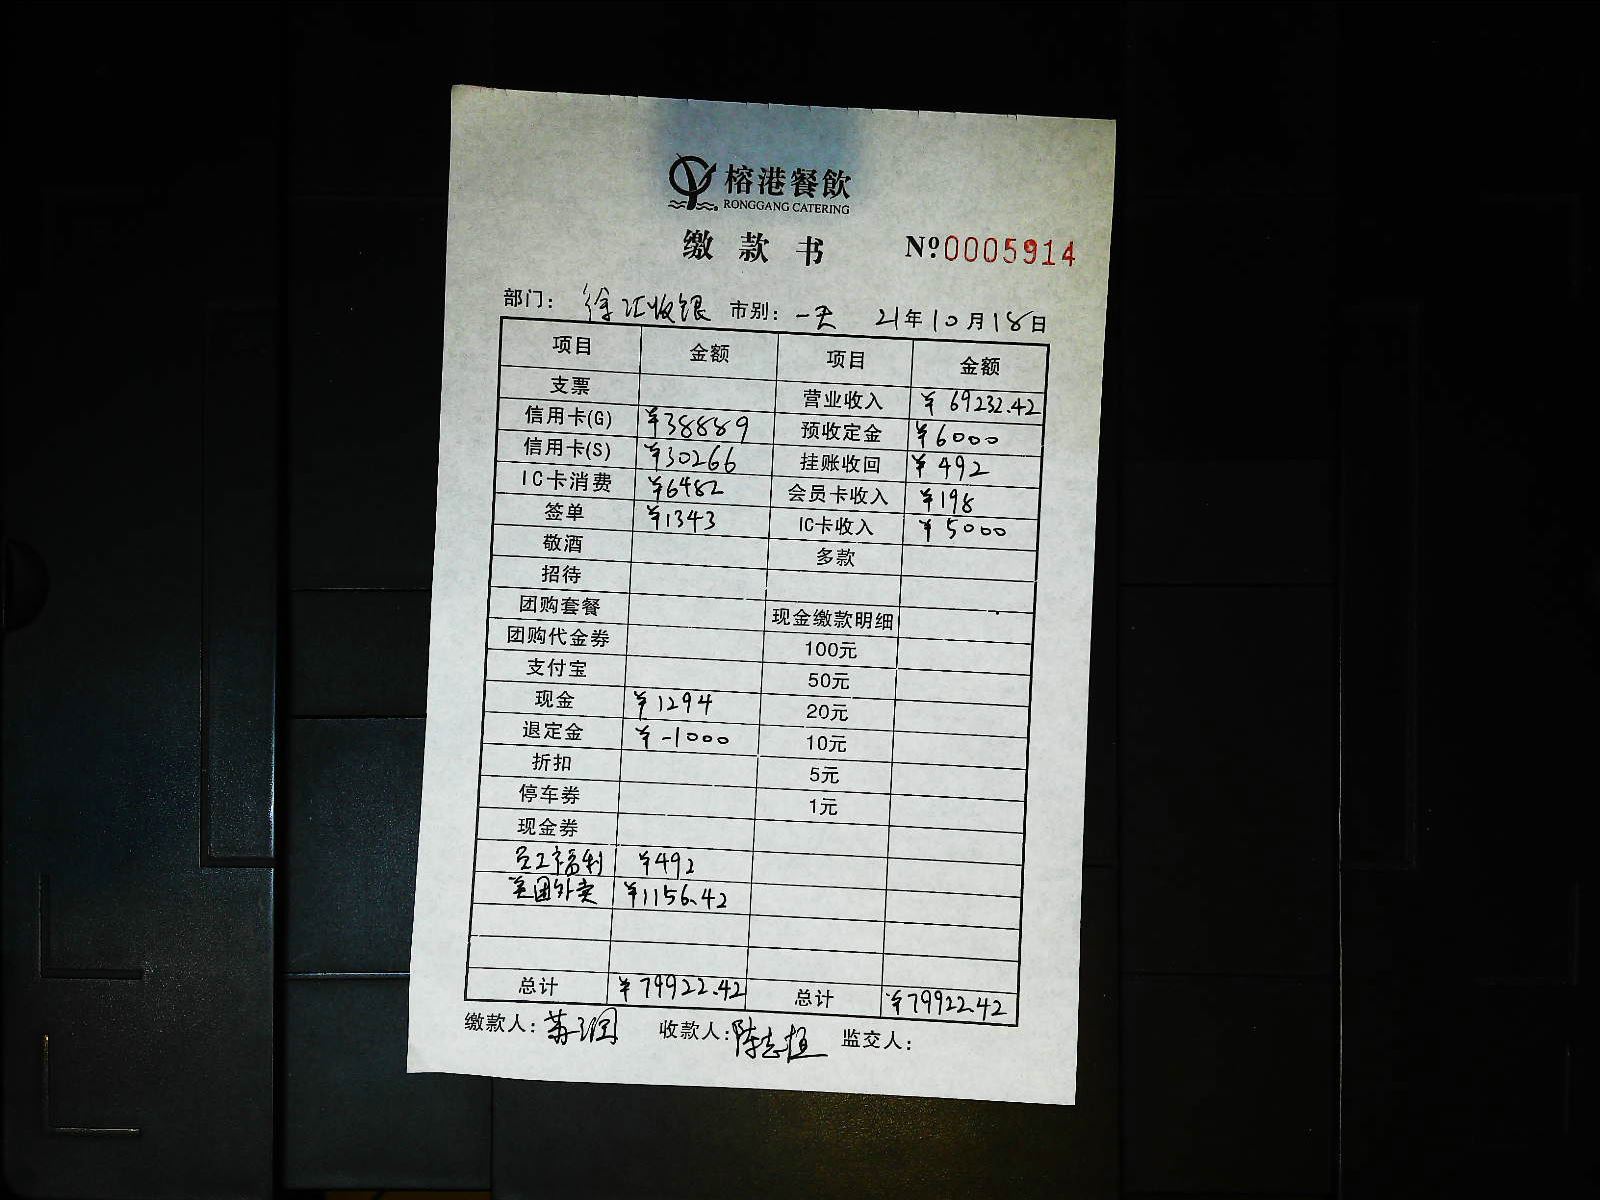 榕港餐飲
RONGGANG CATERING
缴款书 №0005914
部门: 徐汇收银 市别: 一天 21年10月18日
项目 金额 项目 金额
支票 营业收入 ¥69232.42
信用卡(G) ¥38889 预收定金 ¥6000
信用卡(S) ¥30266 挂账收回 ¥492
IC卡消费 ¥6482 会员卡收入 ¥198
签单 ¥1343 IC卡收入 ¥5000
敬酒 多款
招待
团购套餐 现金缴款明细
团购代金券 100元
支付宝 50元
现金 ¥1294 20元
退定金 ¥-1000 10元
折扣 5元
停车券 1元
现金券
员工福利 ¥492
美团外卖 ¥1156.42
总计 ¥79922.42 总计 ¥79922.42
缴款人: 收款人: 监交人: